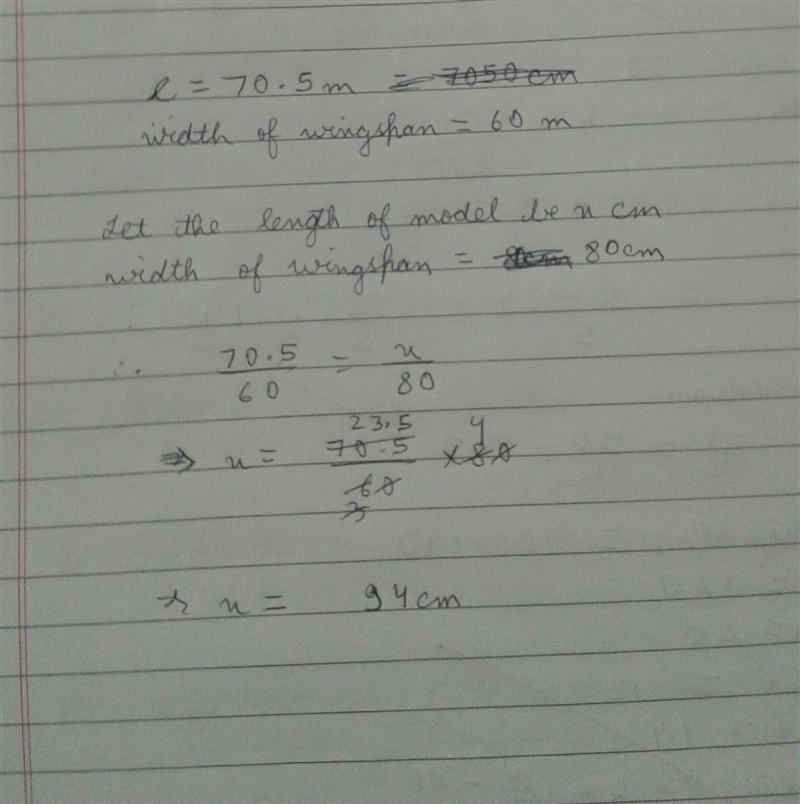 l = 70.5 m = 7050 cm
width of wingspan = 60 m
Let the length of model be x cm
width of wingspan = 80 cm
∴ 70.5/60 = x/80
⇒ x = 70.5/60 × 80
23.5 4
3
⇒ x = 94 cm